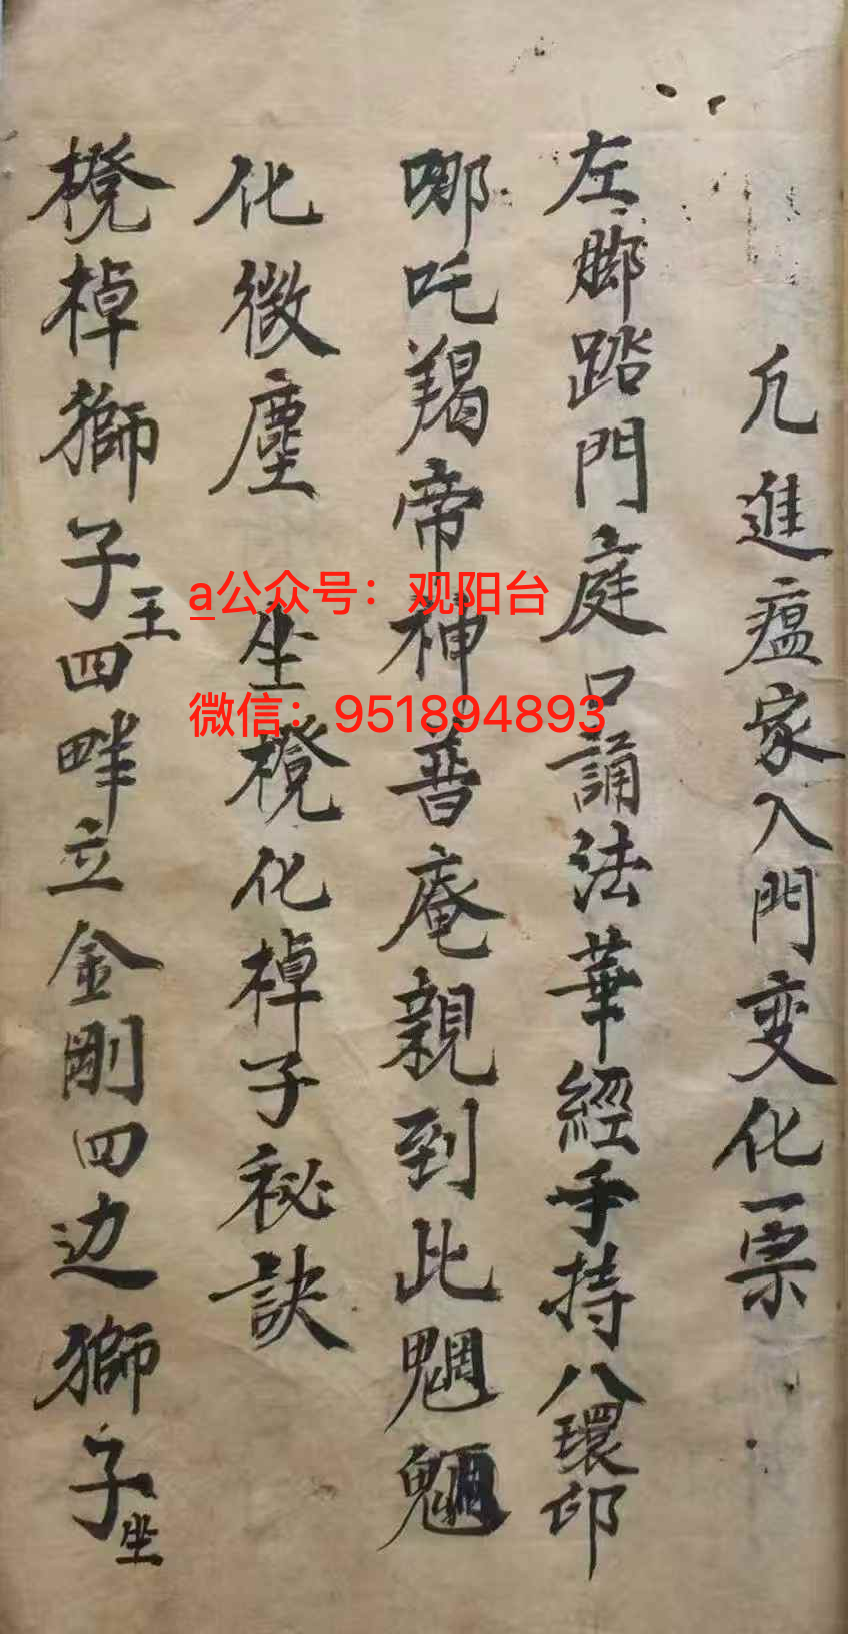 凢進瘟家入門变化票
左脚踏門庭口誦法華經手持八環印
哪吒羯帝神普庵親到此魍魎
化微塵 坐櫈化棹子秘訣
櫈棹獅子王四畔立金剛四边獅子坐
a公众号：观阳台
微信：951894893